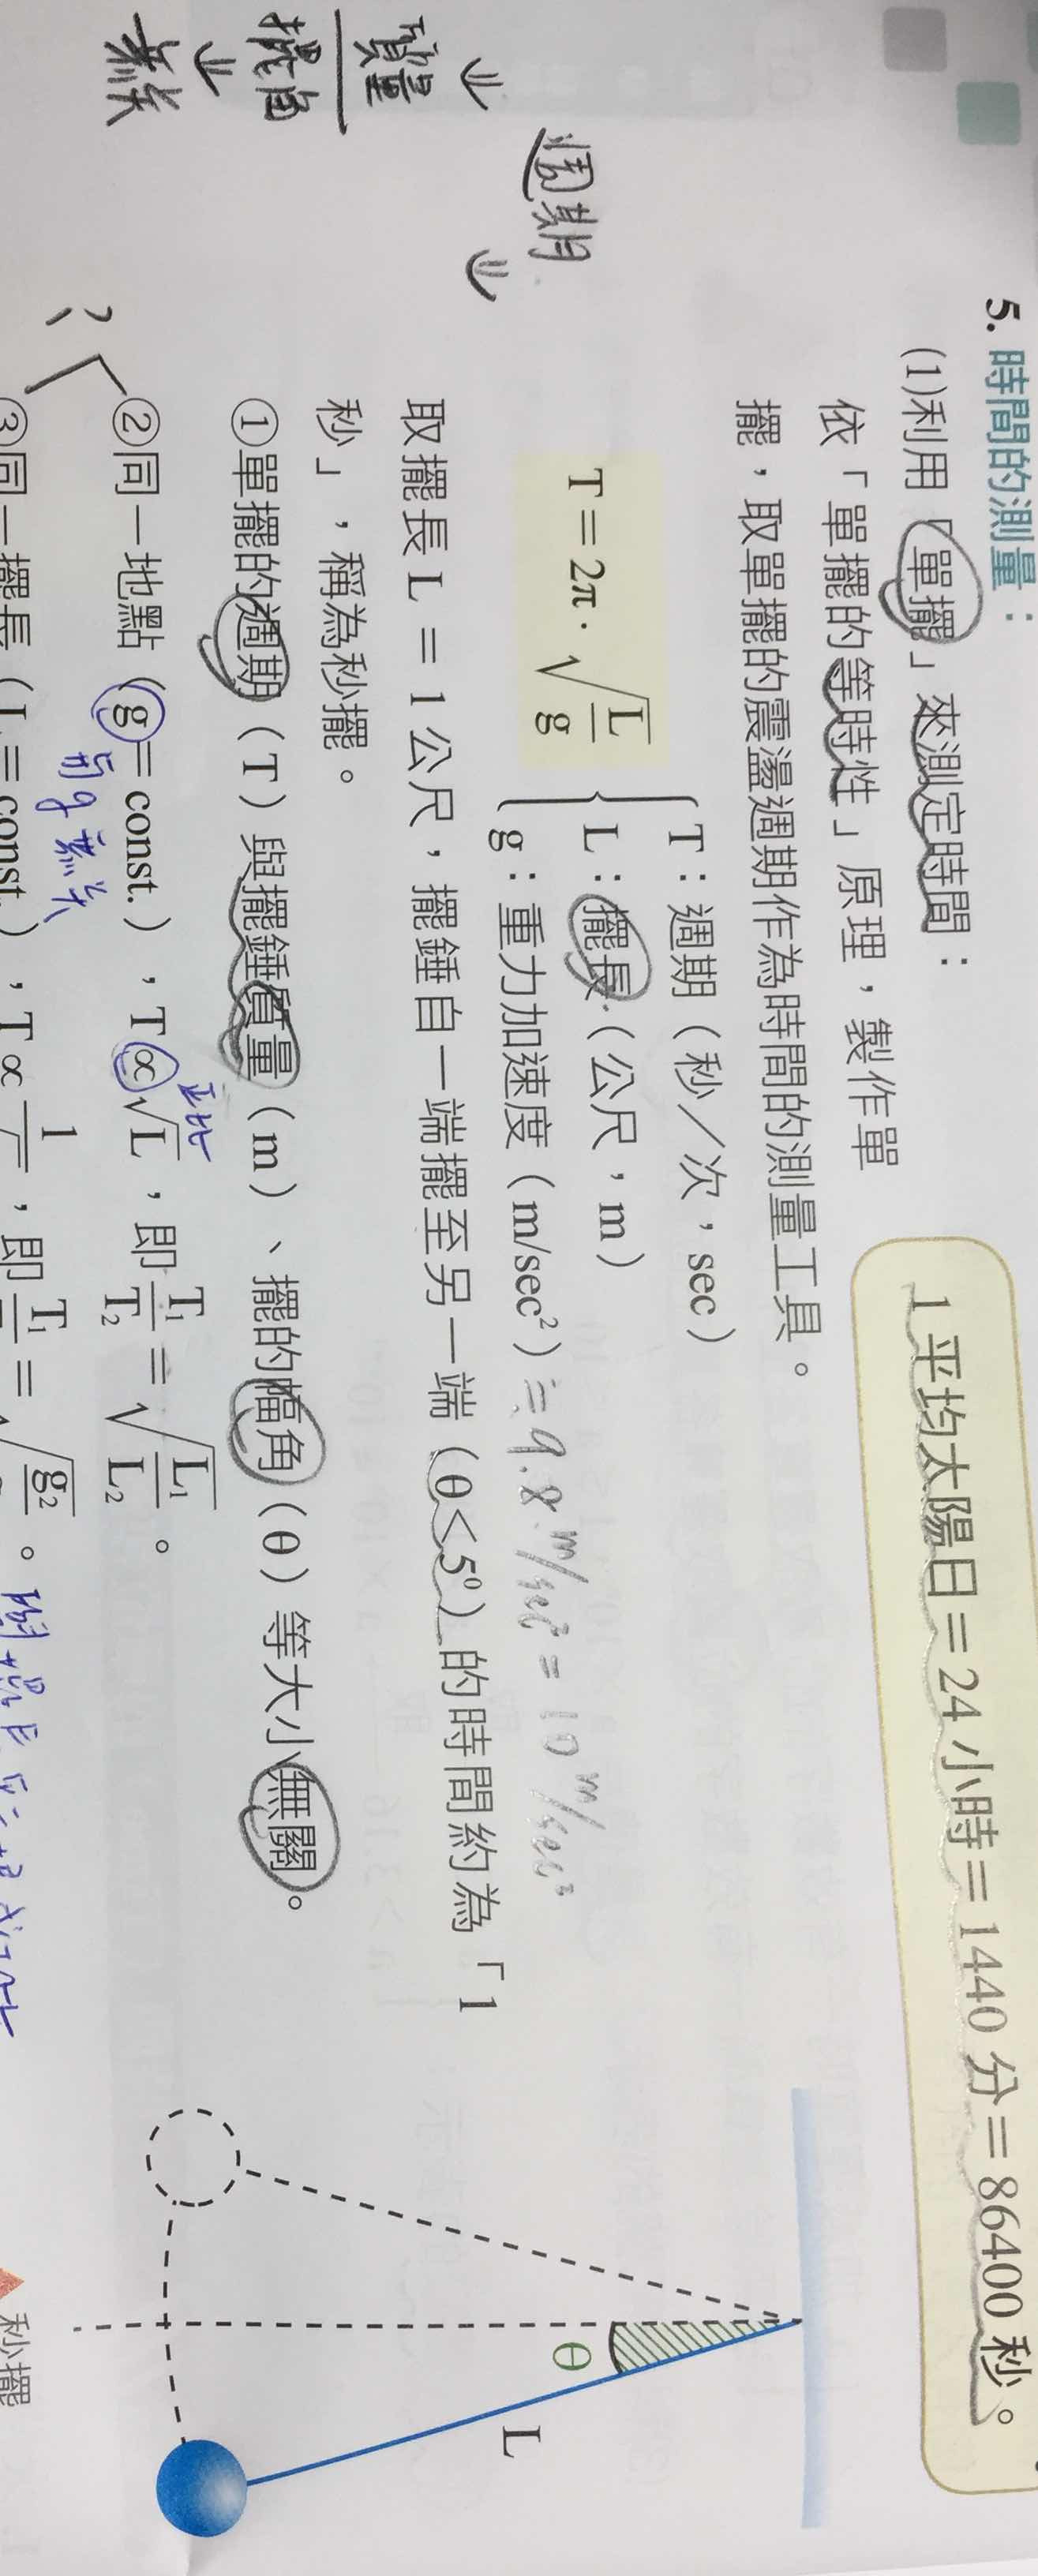 5. 時間的測量：
(1)利用「單擺」來測定時間：
依「單擺的等時性」原理，製作單
擺，取單擺的震盪週期作為時間的測量工具。
1 平均太陽日＝24 小時＝1440 分＝86400 秒。
T＝2π·√(L/g)
T：週期（秒／次，sec）
L：擺長（公尺，m）
g：重力加速度（m/sec²）≒9.8 m/sec² = 10 m/sec²
取擺長 L ＝ 1 公尺，擺錘自一端擺至另一端（θ＜5°）的時間約為「1
秒」，稱為秒擺。
①單擺的週期（T）與擺錘質量（m）、擺的幅角（θ）等大小無關。
②同一地點（g＝const.），T∝√L，即 T₁/T₂＝√(L₁/L₂)。
正比
與g無關
③同一擺長（L＝const.），T∝1/，即 T₁/＝√g₂。
週期
↓
↓
質量
擺角
↓
無關
?
θ
L
秒擺